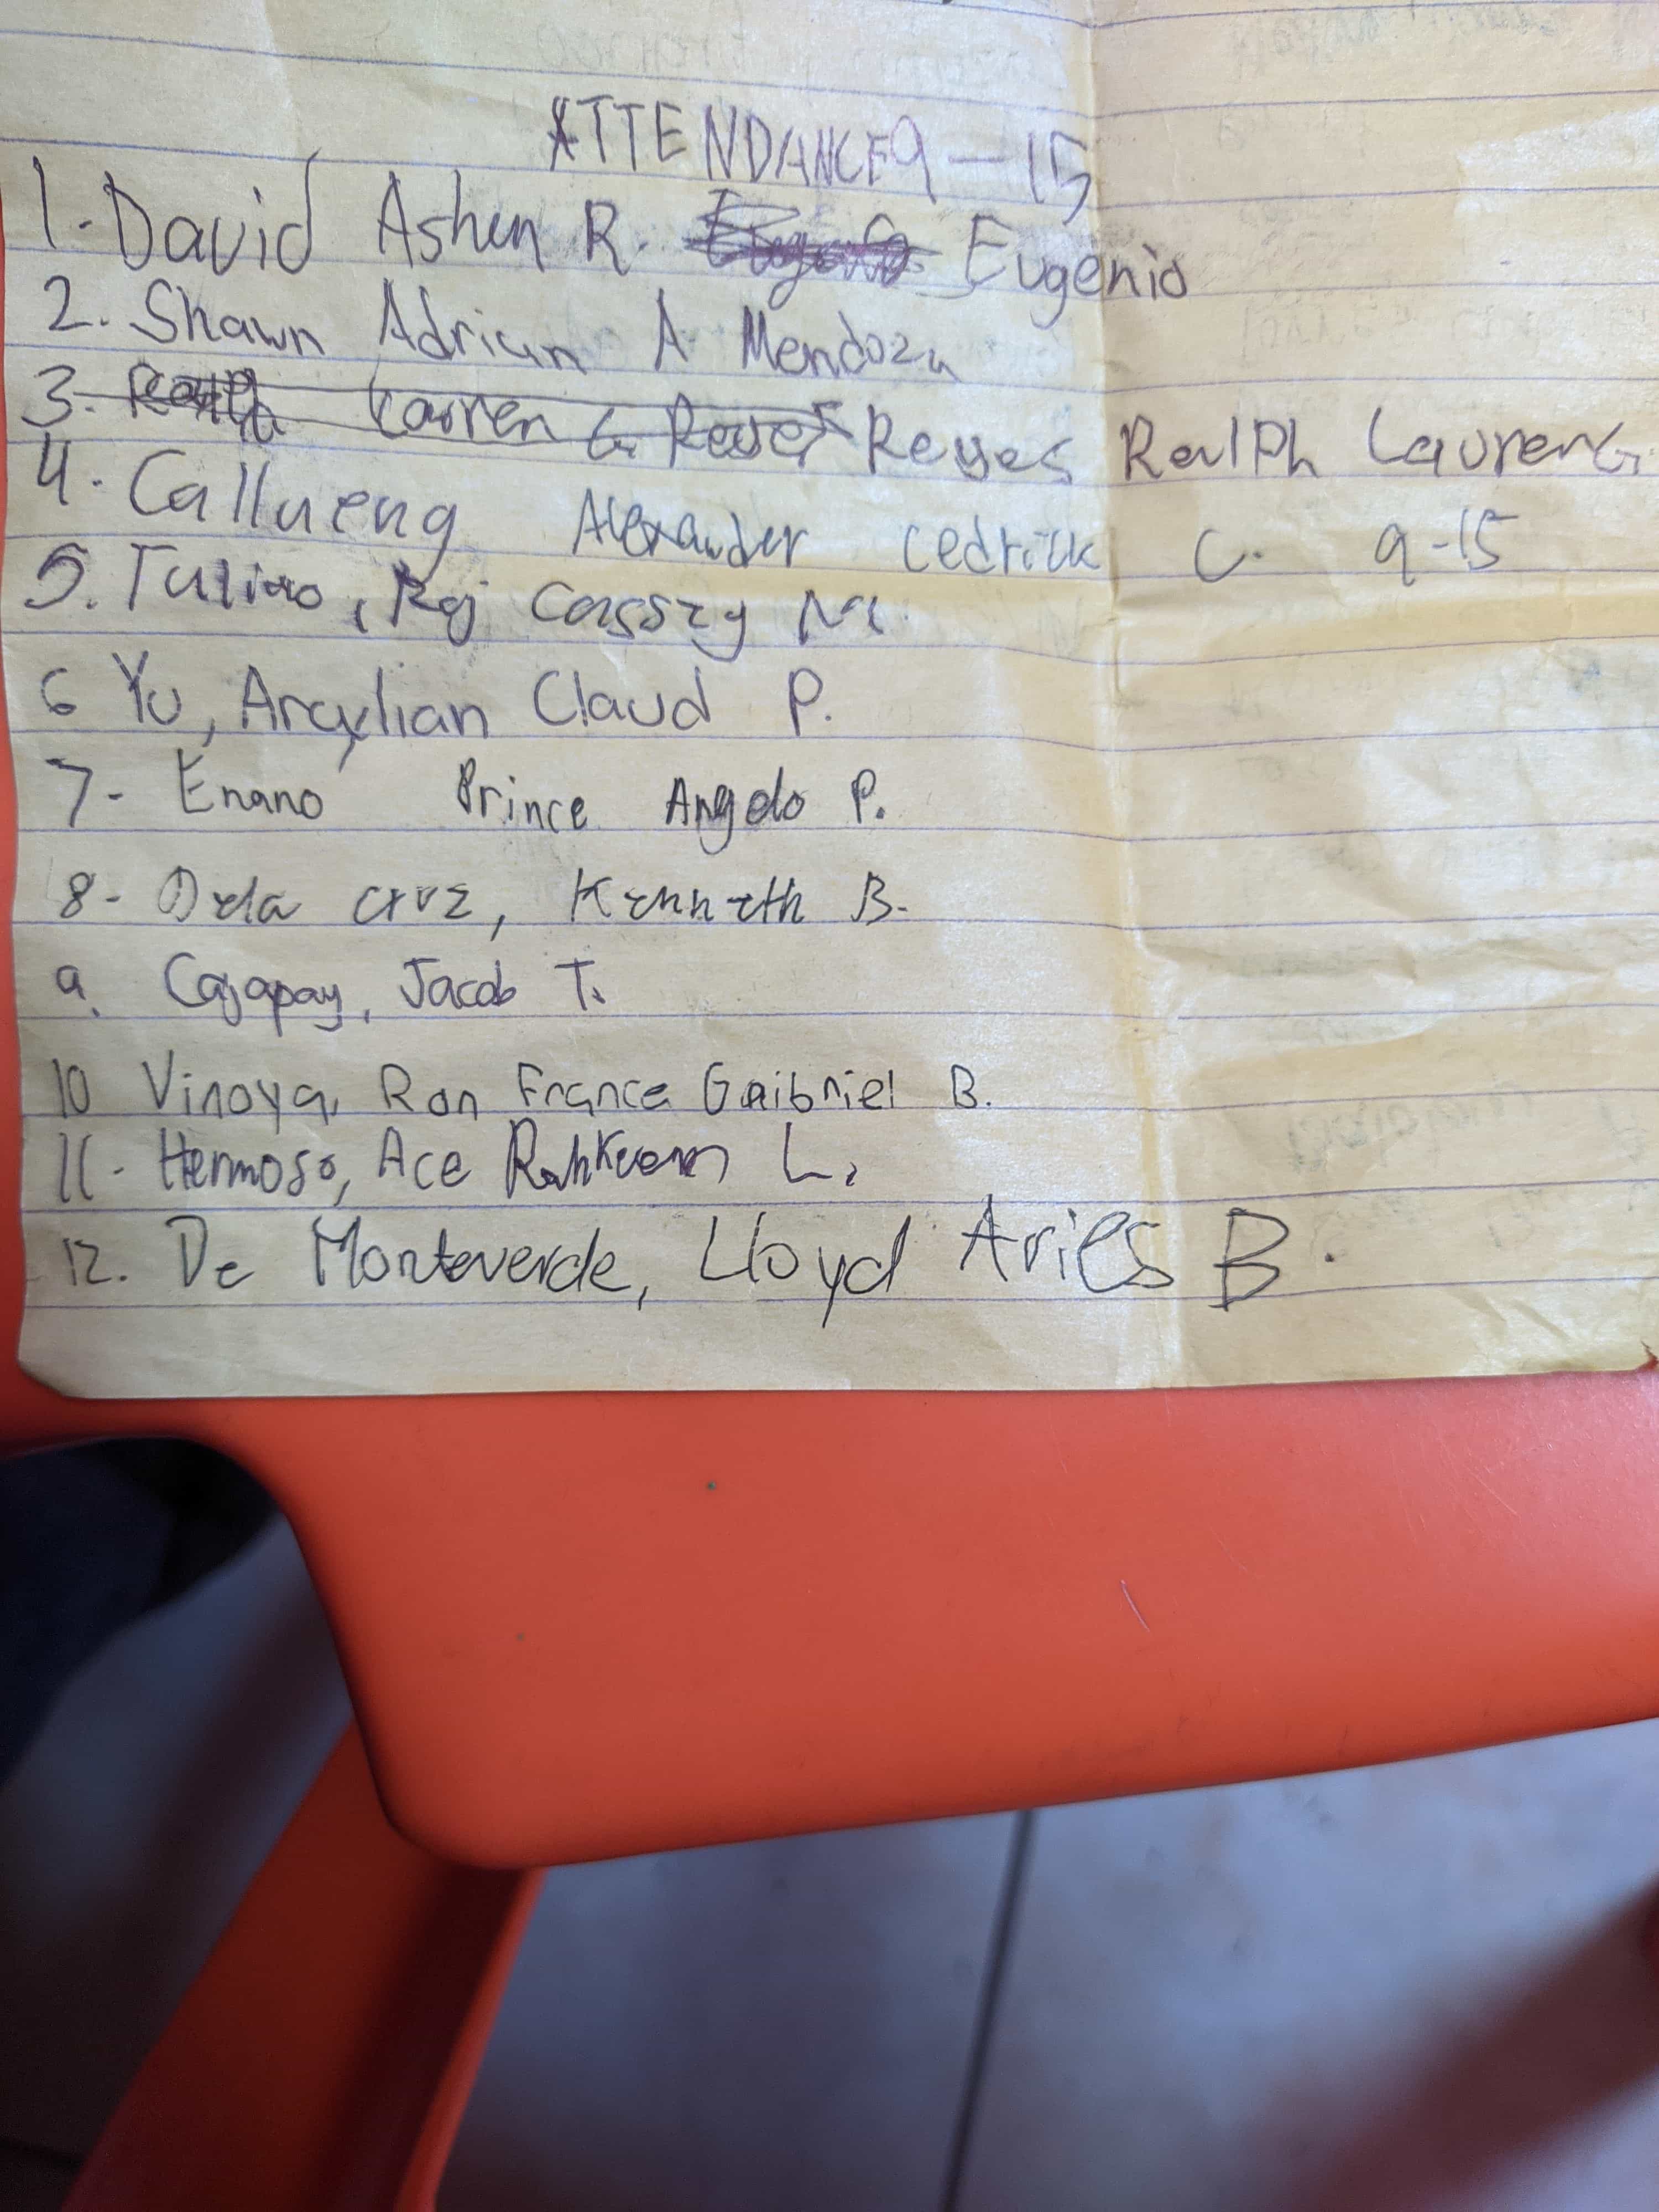 ATTENDANCE 9-15
1. David Ashen R. Eugenio
2. Shawn Adrian A Mendoza
3. Lauren G. Reyes Ralph Lauren G.
4. Callueng Alexander Cedrick C. 9-15
5. Tuliao, Raj Cassey M.
6 Yu, Arcylian Claud P.
7- Enano Prince Angelo P.
8- Dela cruz, Kenneth B.
9. Cajapay, Jacob T.
10 Vinoya, Ron France Gaibriel B.
11- Hermoso, Ace L.
12. De Monteverde, Lloyd Aries B.